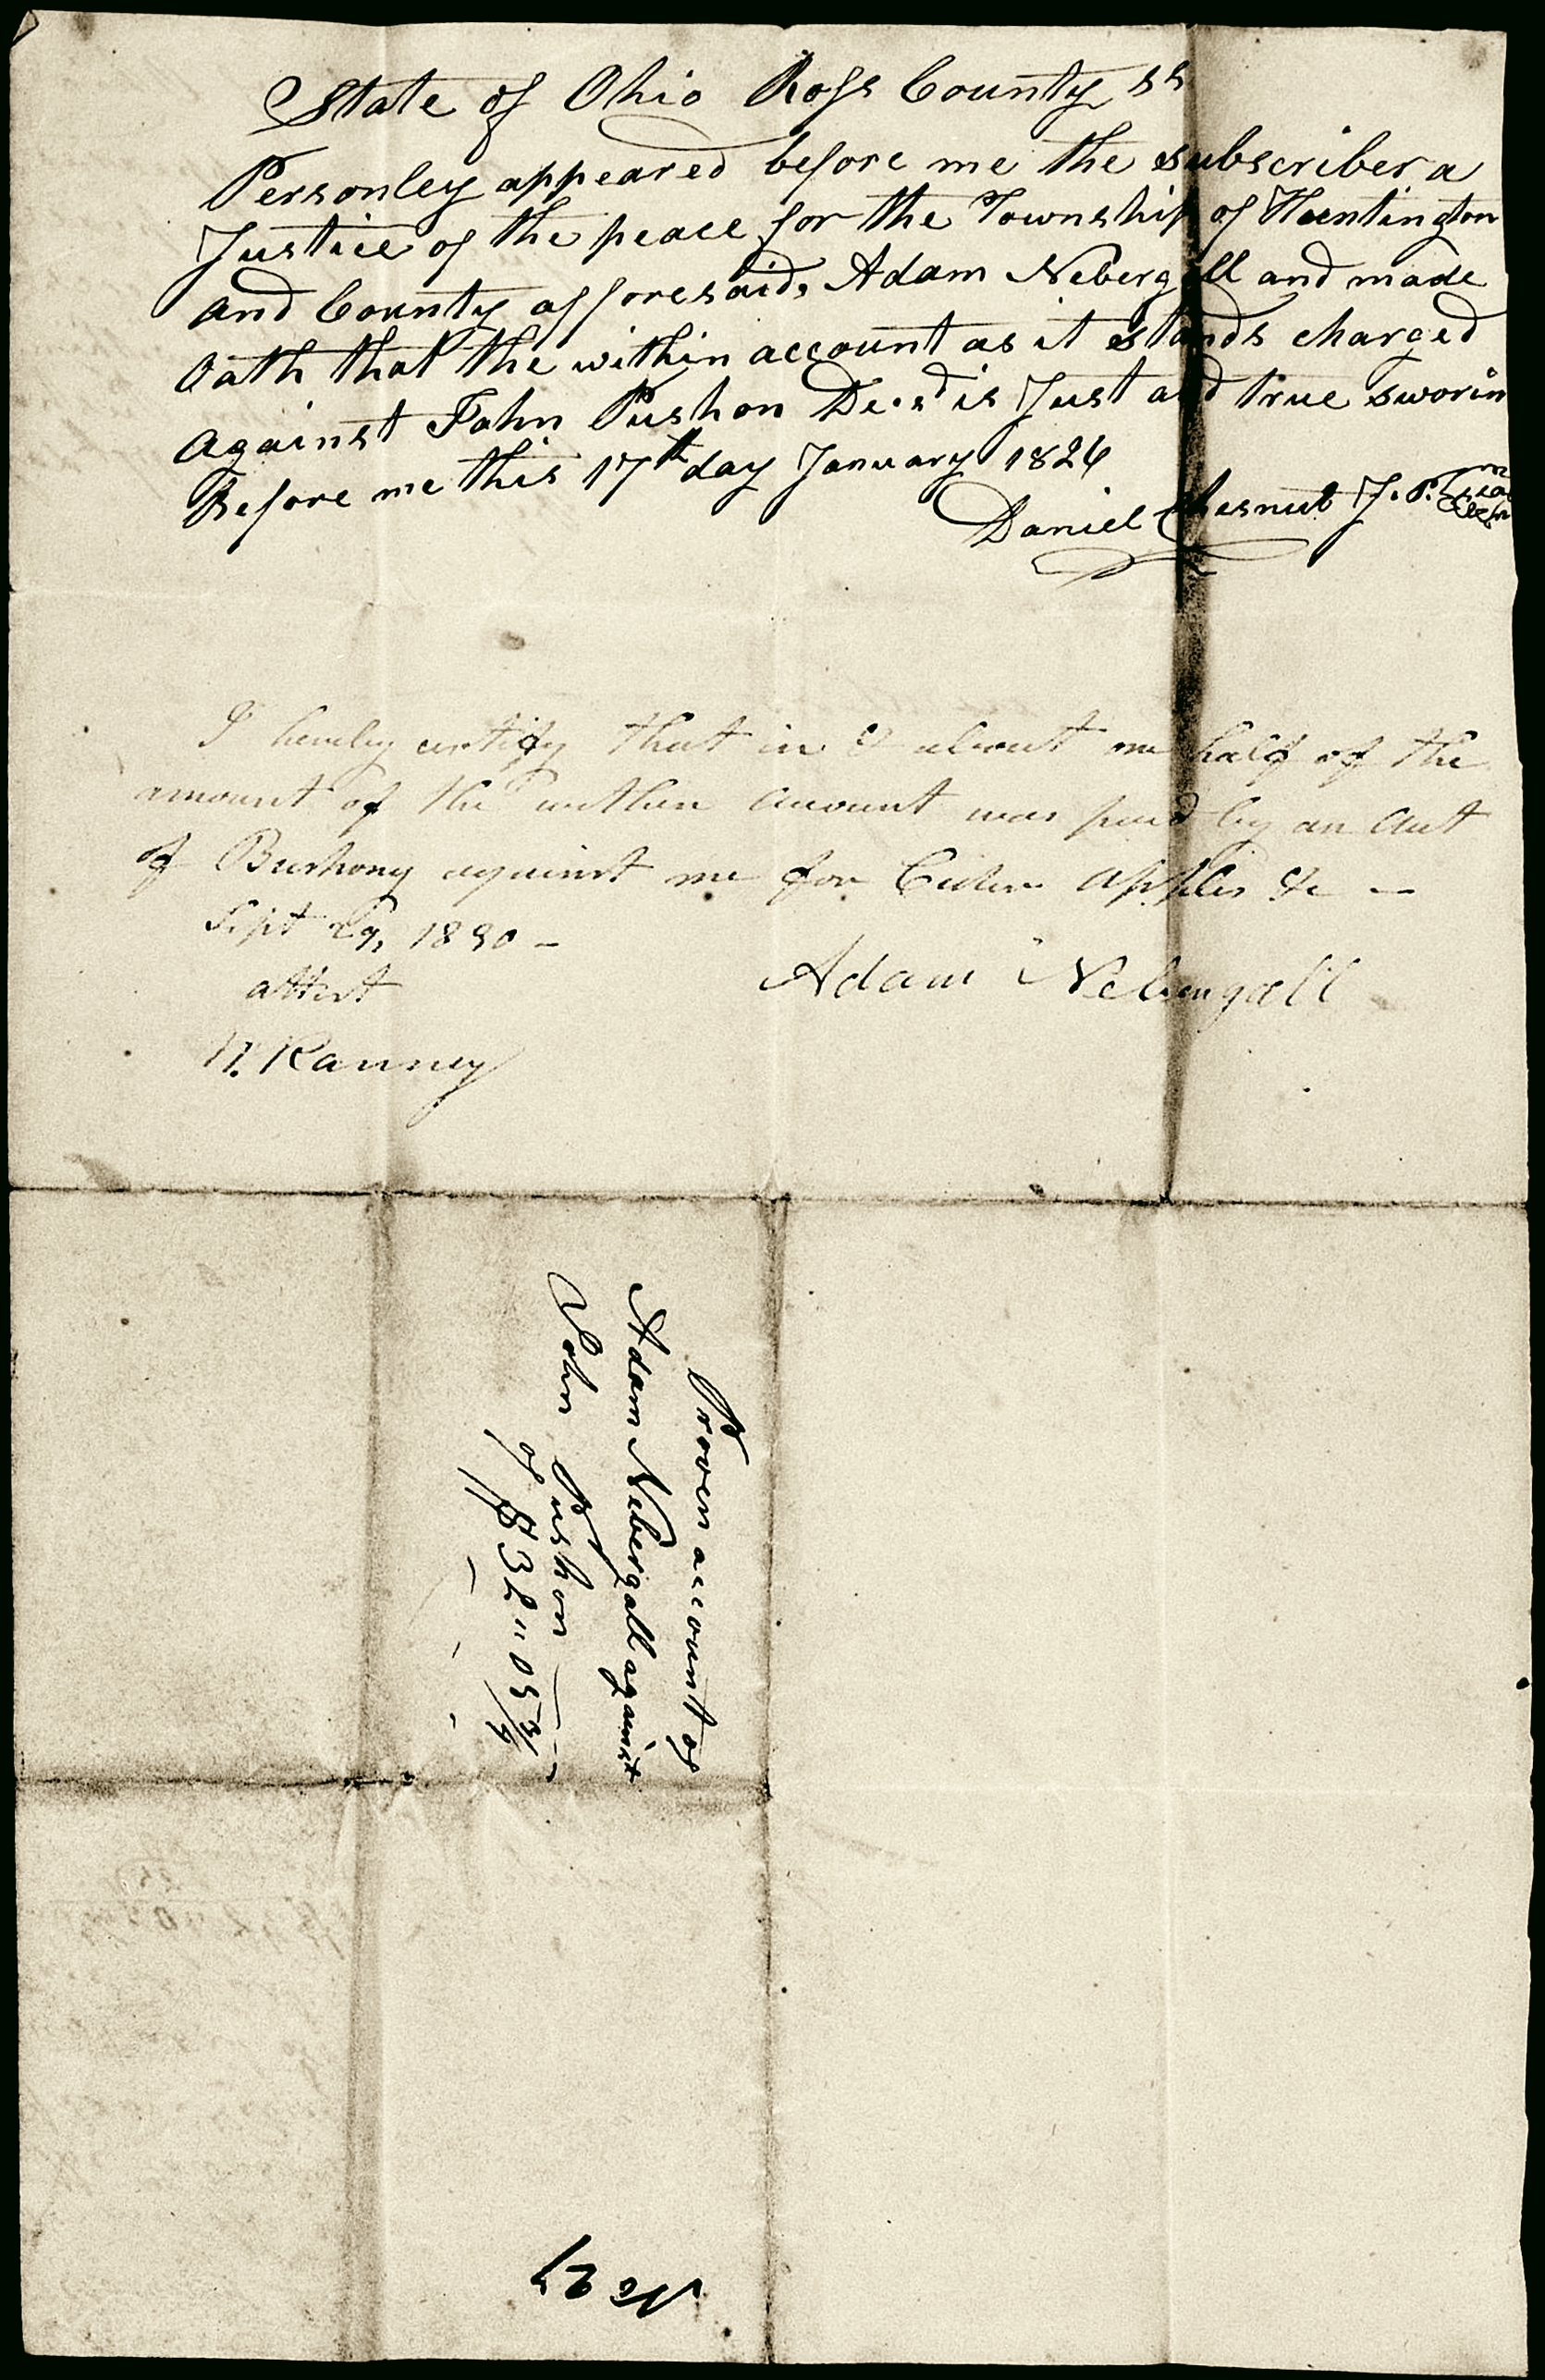 State of Ohio Ross County ss
Personley appeared before me the subscriber a
Justice of the peace for the Township of Huntington
and County afforesaid, Adam Nebergall and made
Oath that the within account as it stands charged
against John Pushon Decsd is Just and true sworin
Before me this 17th day January 1826
Daniel Chesnut J. P.
I hereby certify that in & about one half of the
amount of the within account was paid by an Act
of Bushong against me for Cider apples &c —
Sept 29, 1830 —
attest
Adam Nebergall
N. Ranney
Proven account of
Adam Nebergall against
John Pushon
of $32 " 05 3/4
No 27